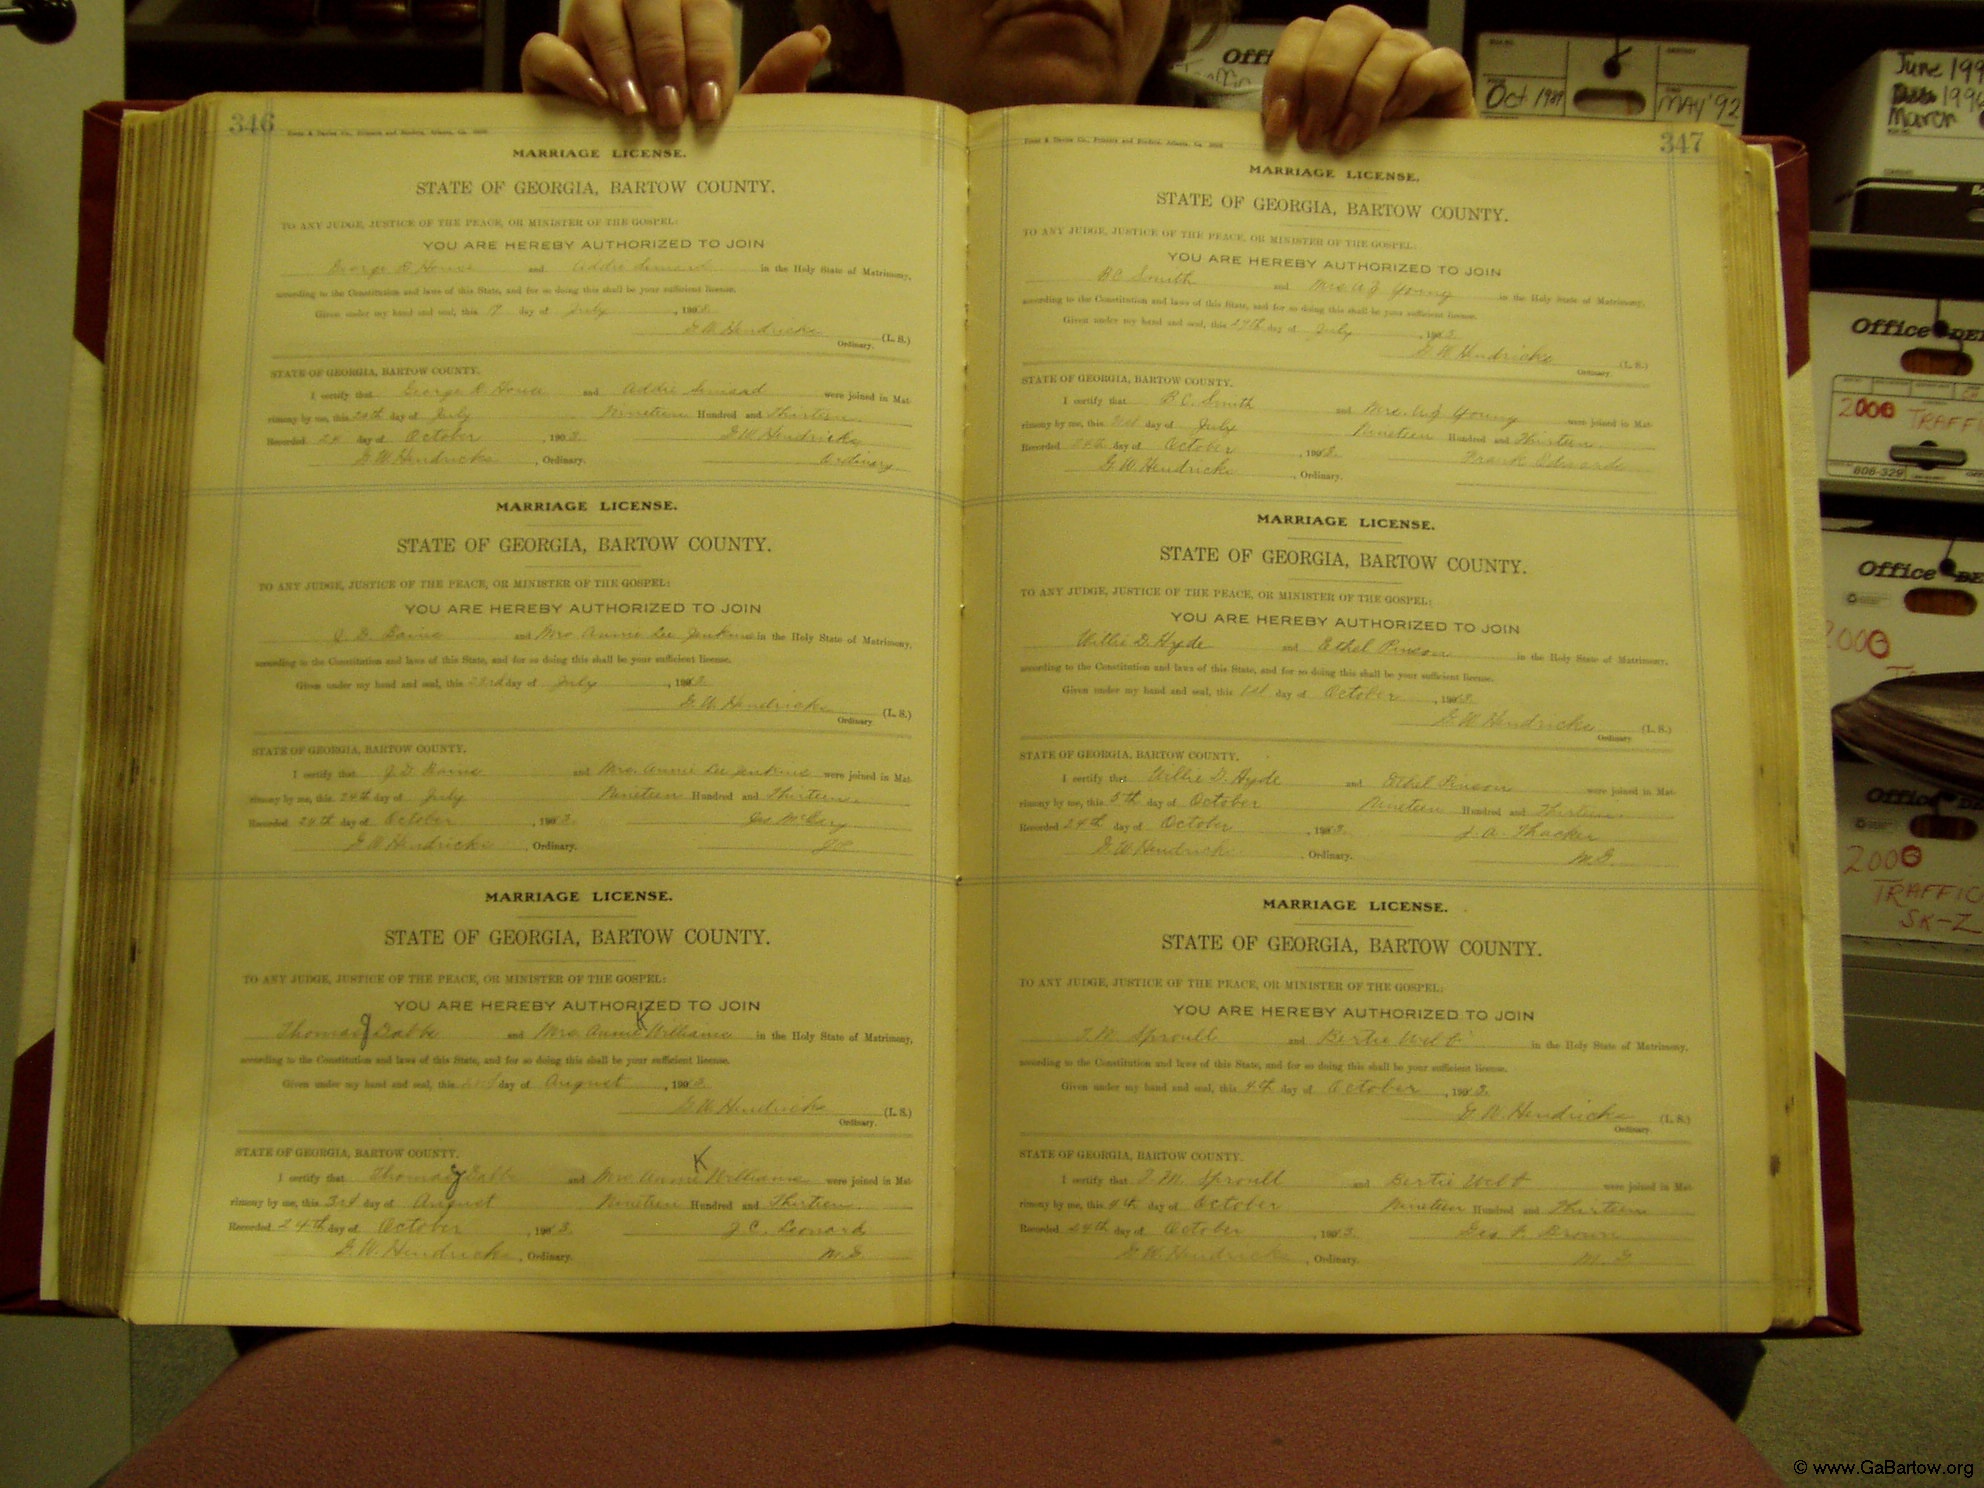 346
MARRIAGE LICENSE.
STATE OF GEORGIA, BARTOW COUNTY.
TO ANY JUDGE, JUSTICE OF THE PEACE, OR MINISTER OF THE GOSPEL:
YOU ARE HEREBY AUTHORIZED TO JOIN
George and Addie in the Holy State of Matrimony,
according to the Constitution and laws of this State, and for so doing this shall be your sufficient license.
Given under my hand and seal, this 9 day of July, 1903.
G. W. Hendricks (L. S.)
Ordinary.
STATE OF GEORGIA, BARTOW COUNTY.
I certify that George and Addie were joined in Mat-
rimony by me, this 20th day of July Nineteen Hundred and Thirteen.
Recorded 24 day of October, 1903. G. W. Hendricks
G. W. Hendricks, Ordinary. Ordinary
MARRIAGE LICENSE.
STATE OF GEORGIA, BARTOW COUNTY.
TO ANY JUDGE, JUSTICE OF THE PEACE, OR MINISTER OF THE GOSPEL:
YOU ARE HEREBY AUTHORIZED TO JOIN
J. D. and Mrs Annie Lee Jenkins in the Holy State of Matrimony,
according to the Constitution and laws of this State, and for so doing this shall be your sufficient license.
Given under my hand and seal, this 23rd day of July, 1903.
G. W. Hendricks (L. S.)
Ordinary
STATE OF GEORGIA, BARTOW COUNTY.
I certify that J. D. and Mrs. Annie Lee Jenkins were joined in Mat-
rimony by me, this 24th day of July Nineteen Hundred and Thirteen.
Recorded 24th day of October, 1903.
G. W. Hendricks, Ordinary.
MARRIAGE LICENSE.
STATE OF GEORGIA, BARTOW COUNTY.
TO ANY JUDGE, JUSTICE OF THE PEACE, OR MINISTER OF THE GOSPEL:
YOU ARE HEREBY AUTHORIZED TO JOIN
Thomas J Dabbs and Mrs. Annie K Williams in the Holy State of Matrimony,
according to the Constitution and laws of this State, and for so doing this shall be your sufficient license.
Given under my hand and seal, this day of August, 1903.
G. W. Hendricks (L. S.)
Ordinary.
STATE OF GEORGIA, BARTOW COUNTY.
I certify that Thomas J Dabbs and Mrs Annie K Williams were joined in Mat-
rimony by me, this 3rd day of August Nineteen Hundred and Thirteen.
Recorded 24th day of October, 1903. J. C. Leonard
G. W. Hendricks, Ordinary. M. G.
347
MARRIAGE LICENSE.
STATE OF GEORGIA, BARTOW COUNTY.
TO ANY JUDGE, JUSTICE OF THE PEACE, OR MINISTER OF THE GOSPEL:
YOU ARE HEREBY AUTHORIZED TO JOIN
Smith and Mrs. Young in the Holy State of Matrimony,
according to the Constitution and laws of this State, and for so doing this shall be your sufficient license.
Given under my hand and seal, this day of July, 1903.
G. W. Hendricks (L. S.)
Ordinary.
STATE OF GEORGIA, BARTOW COUNTY.
I certify that Smith and Mrs. Young were joined in Mat-
rimony by me, this day of July Nineteen Hundred and Thirteen.
Recorded 24th day of October, 1903. Frank Edwards
G. W. Hendricks, Ordinary.
MARRIAGE LICENSE.
STATE OF GEORGIA, BARTOW COUNTY.
TO ANY JUDGE, JUSTICE OF THE PEACE, OR MINISTER OF THE GOSPEL:
YOU ARE HEREBY AUTHORIZED TO JOIN
Willie D. Hyde and Ethel Pinson in the Holy State of Matrimony,
according to the Constitution and laws of this State, and for so doing this shall be your sufficient license.
Given under my hand and seal, this 1st day of October, 1903.
G. W. Hendricks (L. S.)
Ordinary.
STATE OF GEORGIA, BARTOW COUNTY.
I certify that Willie D. Hyde and Ethel Pinson were joined in Mat-
rimony by me, this 5th day of October Nineteen Hundred and Thirteen.
Recorded 24th day of October, 1903. J. A. Thacker
G. W. Hendricks, Ordinary. M. G.
MARRIAGE LICENSE.
STATE OF GEORGIA, BARTOW COUNTY.
TO ANY JUDGE, JUSTICE OF THE PEACE, OR MINISTER OF THE GOSPEL:
YOU ARE HEREBY AUTHORIZED TO JOIN
Sproull and Bertie Webb in the Holy State of Matrimony,
according to the Constitution and laws of this State, and for so doing this shall be your sufficient license.
Given under my hand and seal, this 4th day of October, 1903.
G. W. Hendricks (L. S.)
Ordinary.
STATE OF GEORGIA, BARTOW COUNTY.
I certify that Sproull and Bertie Webb were joined in Mat-
rimony by me, this day of October Nineteen Hundred and Thirteen
Recorded 24th day of October, 1903. Brown
G. W. Hendricks, Ordinary. M. G.
Oct 1989
MAY '92
June 199
1996
March
Office DE
2000 TRAFFI
606-329
Office DE
2000
Office
2000
TRAFFIC
SK-Z
© www.GaBartow.org